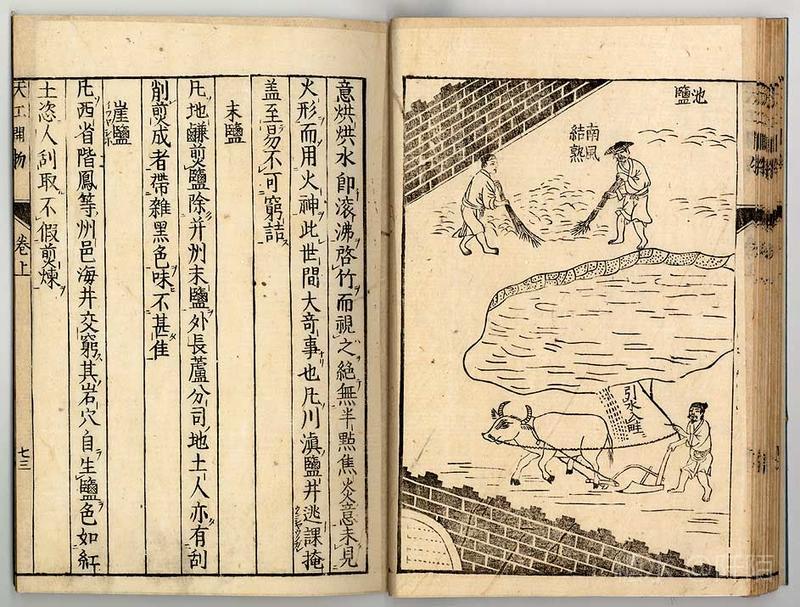 池鹽
南風
結熟
引水入畦
意烘烘水即滾沸啓竹而視之絕無半點焦炎意未見
火形而用火神此世間大奇事也凡川滇鹽井逃課掩
盖至易不可窮詰
末鹽
凡地鹻煎鹽除并州末鹽外長蘆分司地土人亦有刮
削煎成者帶雜黑色味不甚佳
崖鹽
凡西省階鳳等州邑海井交窮其岩穴自生鹽色如紅
土恣人刮取不假煎煉
天工開物 卷上 七三